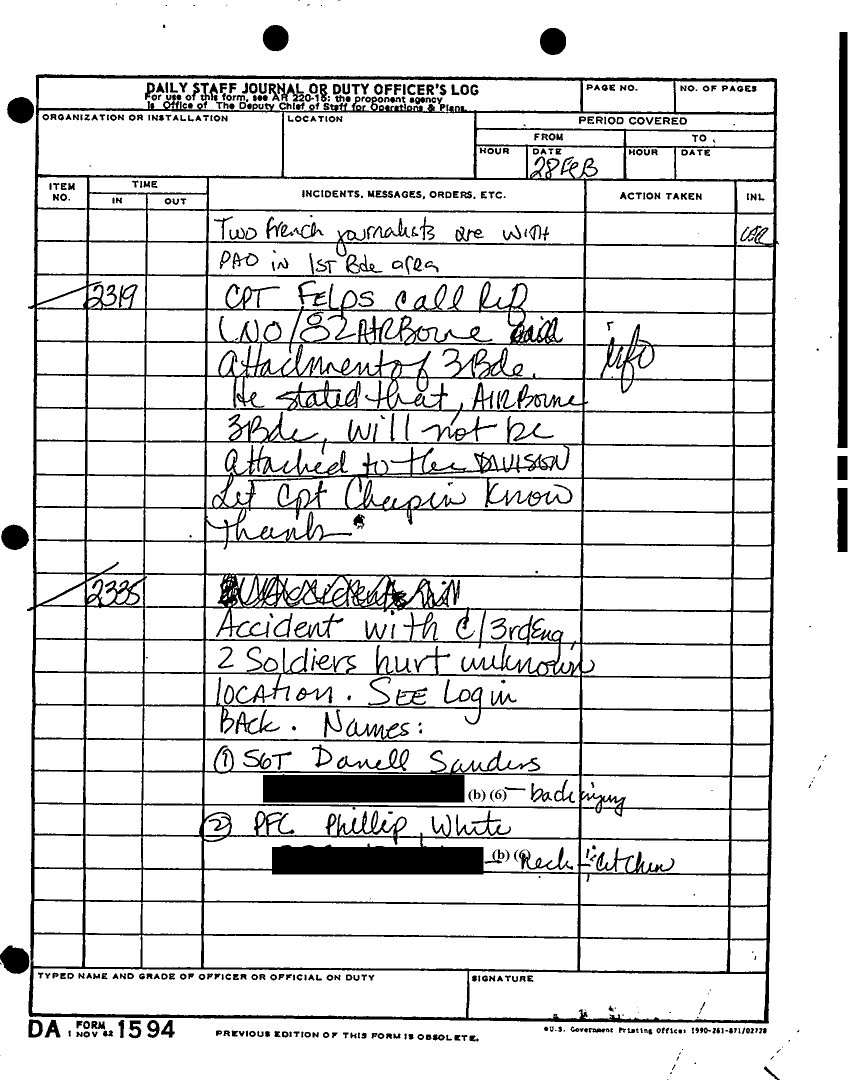 DAILY STAFF JOURNAL OR DUTY OFFICER'S LOG
For use of this form, see AR 220-15; the proponent agency
is Office of The Deputy Chief of Staff for Operations & Plans.
PAGE NO.
NO. OF PAGES
ORGANIZATION OR INSTALLATION
LOCATION
PERIOD COVERED
FROM
TO
HOUR
DATE
HOUR
DATE
28 Feb
ITEM NO.
TIME
IN
OUT
INCIDENTS, MESSAGES, ORDERS, ETC.
ACTION TAKEN
INL
Two french journalists are with
PAO in 1ST Bde area
2319 CPT FELPS call Ref
LNO/82 AIRBorne
Attachment of 3Bde. info
He stated that, AIRBorne
3Bde, will not be
attached to the DIVISION
Let Cpt Chapin know
Thanks
2335
Accident with C/3rd Eng,
2 Soldiers hurt unknown
location. SEE Log in
BACK. Names:
① SGT Danell Sanders
(b) (6) back injury
② PFC Phillip, White
(b) (6) Neck
TYPED NAME AND GRADE OF OFFICER OR OFFICIAL ON DUTY
SIGNATURE
DA FORM 1 NOV 62 1594
PREVIOUS EDITION OF THIS FORM IS OBSOLETE.
*U.S. Government Printing Office: 1990-261-871/02728